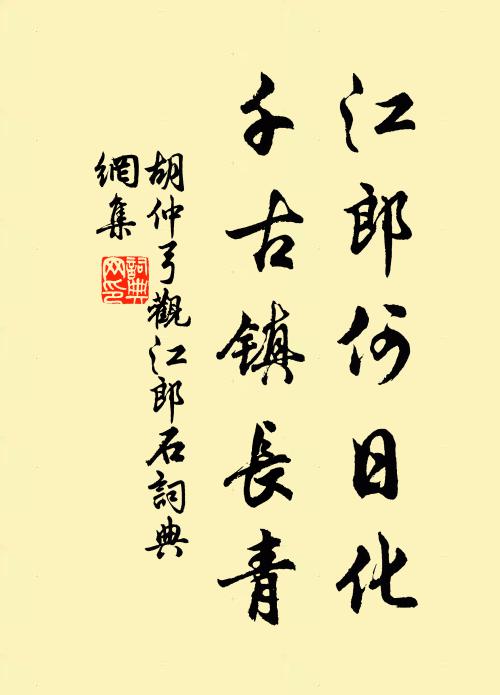 江郎何日化
千古镇長青
胡仲弓觀江郎石詞典
網集
詞典
网印